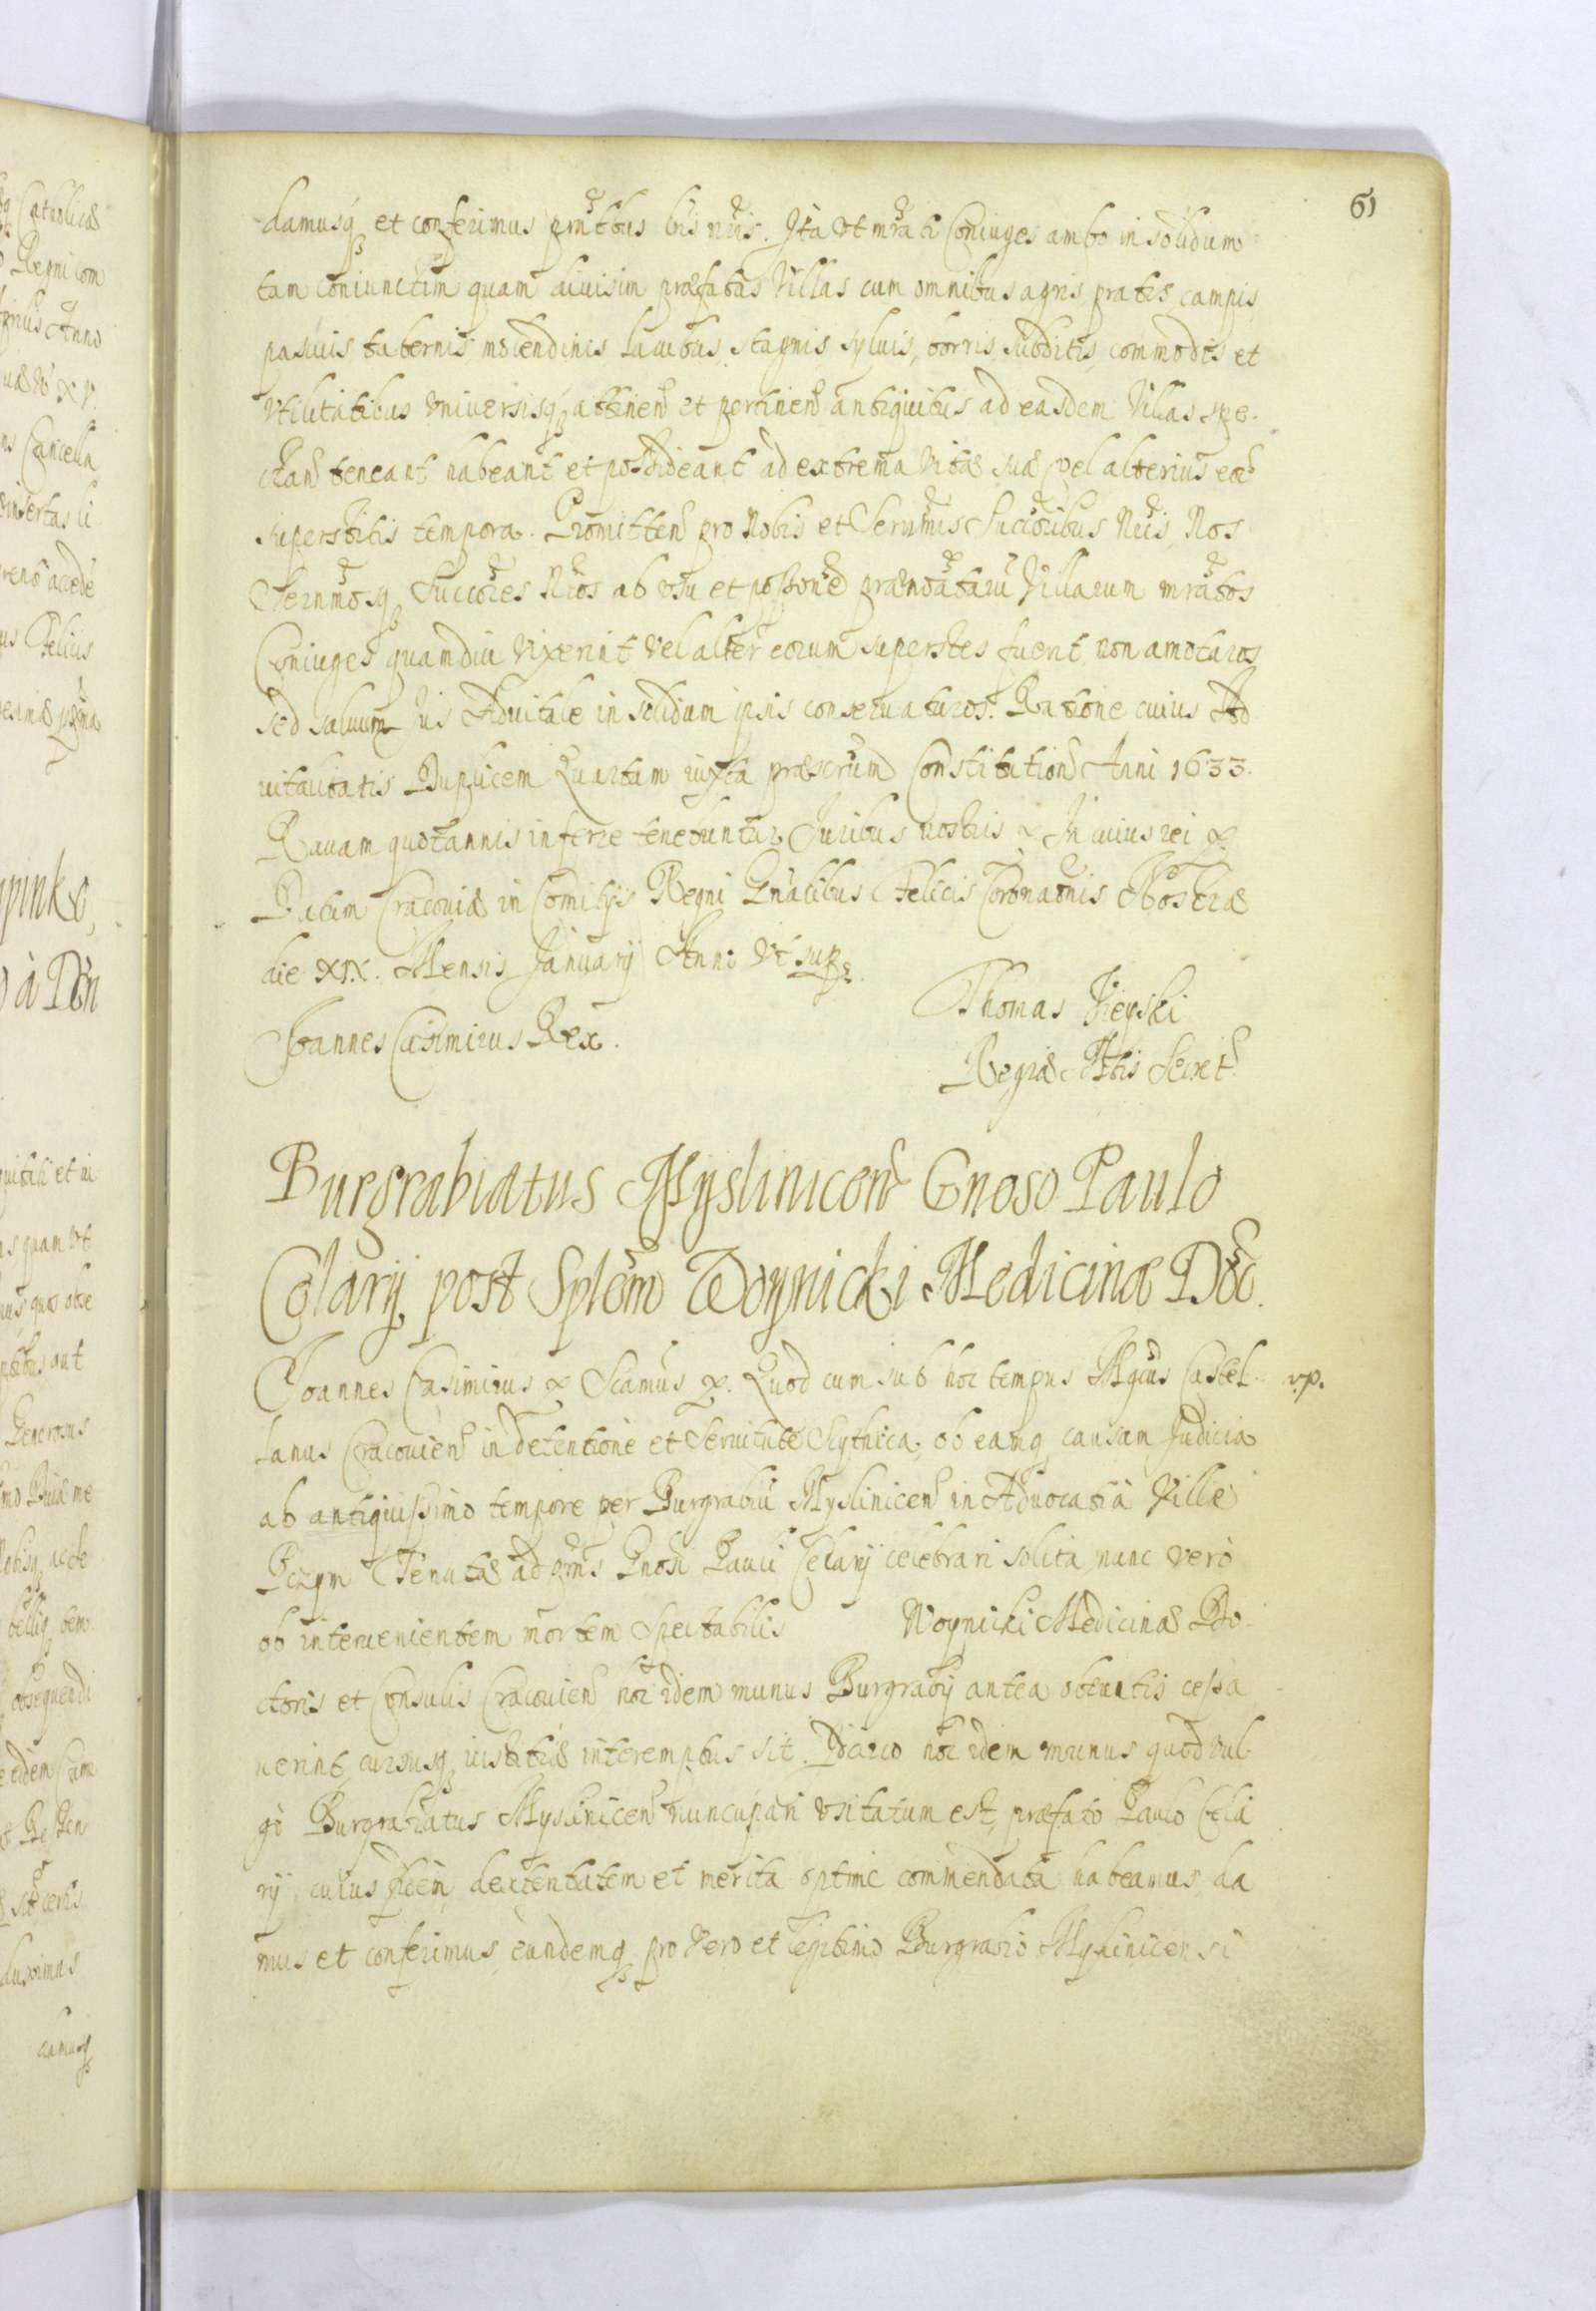 61
damusq. et conferimus pnttbus lris nris. Ita ut mrati Coniuges ambo in solidum
tam coniunctim quam diuisim præfatas Villas cum omnibus agris pratis campis
pascuis tabernis molendinis lacubus, stagnis sylvis, borris, subditis, commodis et
vtilitatibus vniversisq. attinen et pertinen antiquitus ad easdem Villas spe-
ctan teneant habeant et possideant ad extrema vitæ suæ vel alterius eor
superstitis tempora. Promitten pro Nobis et Sernmis Succribus Nris, Nos
Sernmosq. Succres Nros ab vsu et possone prænoataru Villarum mratos
Coniuges quamdiu vixerint vel alter eorum superstes fuerit non amoturos
sed saluum ius Aduitale in solidum ipsis conseruaturos. Ratione cuius Ad
uitalitatis Duplicem Quartam iuxta præscrum Constitution Anni 1633.
Rauam quotannis inferre tenebuntur Iuribus nostris & In cuius rei &.
Datum Cracouiæ in Comitijs Regni Gnalibus Felicis Coronaonis Nostræ
die XIX. Mensis January Anno Vt supr.
Joannes Casimirus Rex.
Thomas Vieyski
Regiæ Mtis Secret
Burgrabiatus Myslinicen Gnoso Paulo
Celary post Splem Woynicki Medicinæ Doc.
Joannes Casimirus & Scamus &. Quod cum sub hoc tempus Mgcus Castel- v.p.
lanus Cracouien in detentione et Seruitute Scythica, ob eamq. causam Judicia
ab antiquissimo tempore per Burgrabiu Myslinicen in Aduocatia Villæ
Pczym Tenutæ ad Gnosi Pauli Celarij celebrari solita, nunc vero
ob intervenientem mortem Spectabilis Woynicki Medicinæ Do-
ctoris et Consulis Cracouien hoc idem munus Burgrabij antea obtentis cessa
uerint, cursusq. iustitiæ interemptus sit. Idcirco hoc idem munus quod vul-
go Burgrabiatus Myslinicen nuncupari vsitatum est, præfato Paulo Cela
rij, cuius fidem, dexteritatem et merita optime commendata habeamus, da
mus et conferimus, eundemq. pro vero et legitimo Burgrabio Myslinicensi